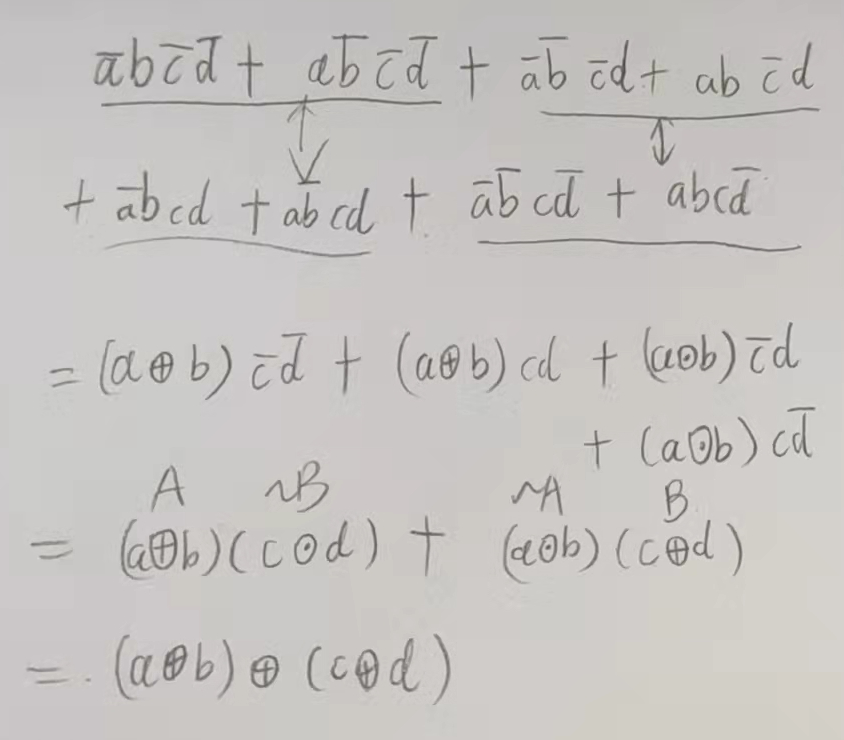 a̅bc̅d̅ + ab̅c̅d̅ + a̅b̅c̅d + abc̅d
+ a̅bcd + ab̅cd + a̅b̅cd̅ + abcd̅
= (a⊕b)c̅d̅ + (a⊕b)cd + (a⊙b)c̅d
+ (a⊙b)cd̅
A ~B ~A B
= (a⊕b)(c⊙d) + (a⊙b)(c⊕d)
= (a⊕b)⊕(c⊕d)